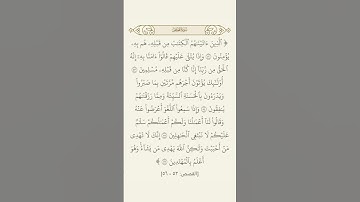 سورة القصص
﴿ ٱلَّذِينَ ءَاتَيْنَـٰهُمُ ٱلْكِتَـٰبَ مِن قَبْلِهِۦ هُم بِهِۦ
يُؤْمِنُونَ ۝ وَإِذَا يُتْلَىٰ عَلَيْهِمْ قَالُوٓا۟ ءَامَنَّا بِهِۦٓ إِنَّهُ
ٱلْحَقُّ مِن رَّبِّنَآ إِنَّا كُنَّا مِن قَبْلِهِۦ مُسْلِمِينَ ۝
أُو۟لَـٰٓئِكَ يُؤْتَوْنَ أَجْرَهُم مَّرَّتَيْنِ بِمَا صَبَرُوا۟
وَيَدْرَءُونَ بِٱلْحَسَنَةِ ٱلسَّيِّئَةَ وَمِمَّا رَزَقْنَـٰهُمْ
يُنفِقُونَ ۝ وَإِذَا سَمِعُوا۟ ٱللَّغْوَ أَعْرَضُوا۟ عَنْهُ
وَقَالُوا۟ لَنَآ أَعْمَـٰلُنَا وَلَكُمْ أَعْمَـٰلُكُمْ سَلَـٰمٌ
عَلَيْكُمْ لَا نَبْتَغِى ٱلْجَـٰهِلِينَ ۝ إِنَّكَ لَا تَهْدِى
مَنْ أَحْبَبْتَ وَلَـٰكِنَّ ٱللَّهَ يَهْدِى مَن يَشَآءُ ۚ وَهُوَ
أَعْلَمُ بِٱلْمُهْتَدِينَ ۝ ﴾
[القصص: ٥٢ - ٥٦]